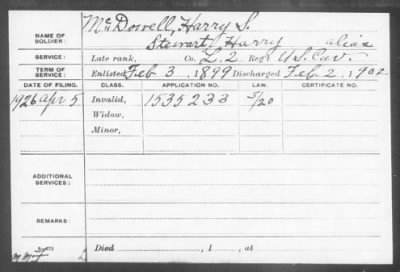 NAME OF SOLDIER: McDowell, Harry S.
Stewart, Harry alias
SERVICE: Late rank, Co. L. 2 Reg't U.S. Cav.
TERM OF SERVICE: Enlisted Feb 3, 1899 Discharged Feb 2, 1902
DATE OF FILING. CLASS. APPLICATION NO. LAW. CERTIFICATE NO.
1926 Apr 5 Invalid, 1535233 5/20
Widow,
Minor,
ADDITIONAL SERVICES:
REMARKS:
Died , 1 , at